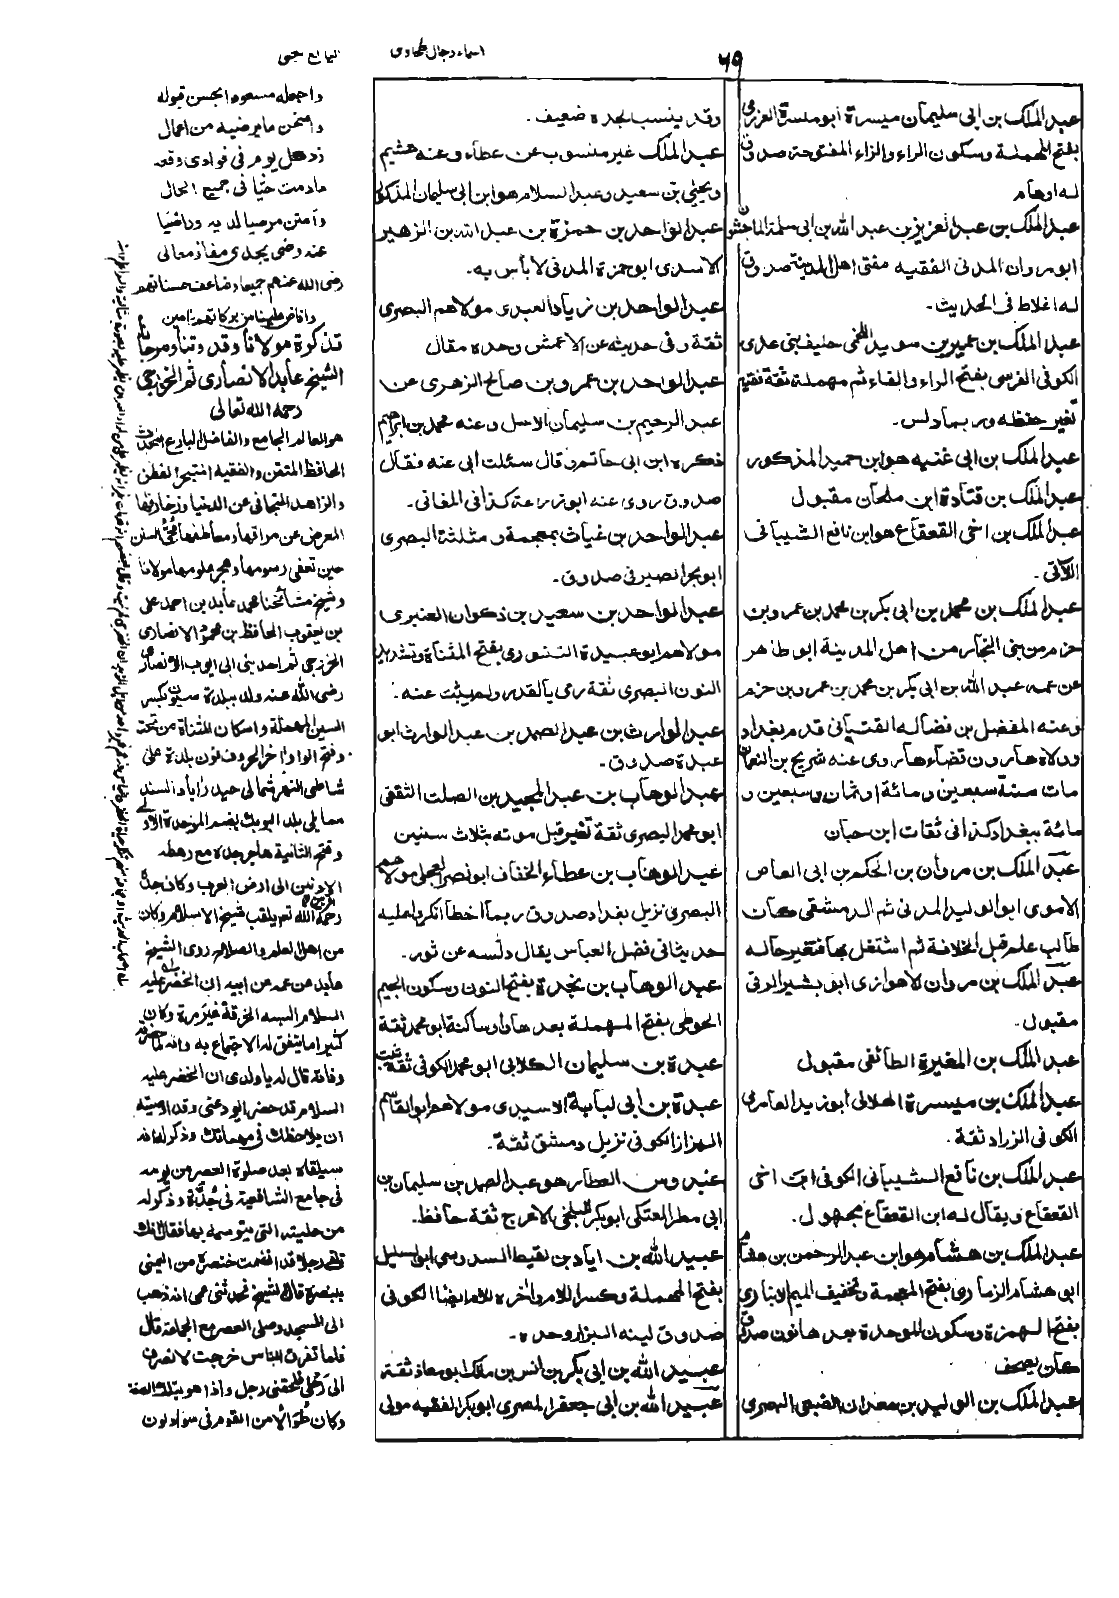 ٦٩
اسماء رجال طحاوى
عبد الملك بن ابى سليمان ميسرة ابو ميسرة العزرمى
بفتح المهملة وسكون الراء والزاء المفتوحة صدوق
له اوهام
عبد الملك بن عبد العزيز بن عبد الله بن ابى سلمة الماجشون
ابو مروان المدنى الفقيه مفتى اهل المدينة صدوق
له اغلاط فى الحديث۔
عبد الملك بن عمير بن سويد اللخمى حليف بنى عدى
الكوفى الفرسى بفتح الراء والفاء ثم مهملة ثقة فقيه
تغير حفظه وربما دلس۔
عبد الملك بن ابى غنيه هو ابن حميد المذكور
عبد الملك بن قتادة ابن ملحان مقبول
عبد الملك بن اخى القعقاع هو ابن نافع الشيبانى
الآتى۔
عبد الملك بن محمد بن ابى بكر بن محمد بن عمرو بن
حزم من بنى النجار من اهل المدينة ابو طاهر
عن عمه عبد الله بن ابى بكر بن محمد بن عمرو بن حزم
وعنه المفضل بن فضاله القتبانى قدم بغداد
وولاه هارون قضاءها روى عنه شريح بن النعمان
مات سنة سبعين ومائة او ثمان وسبعين و
مائة ببغداد كذا فى ثقات ابن حبان
عبد الملك بن مروان بن الحكم بن ابى العاص
الاموى ابو الوليد المدنى ثم الدمشقى كان
طالب علم قبل الخلافة ثم اشتغل بها فتغير حاله
عبد الملك بن مروان الاهوازى ابو بشير الرقى
مقبول۔
عبد الملك بن المغيرة الطائفى مقبول
عبد الملك بن ميسرة الهلالى ابو زيد العامرى
الكوفى الزراد ثقة۔
عبد الملك بن نافع الشيبانى الكوفى ابن اخى
القعقاع ويقال له ابن القعقاع مجهول۔
عبد الملك بن هشام هو ابن عبد الرحمن بن هشام
ابو هشام الذمارى بفتح المعجمة وتخفيف الميم الابنارى
بفتح الهمزة وسكون الموحدة بعدها نون صدوق
كان يصحف
عبد الملك بن الوليد بن معدان الضبعى البصرى
وقد ينسب لجده ضعيف۔
عبد الملك غير منسوب عن عطاء وعنه هشيم
ويحيى بن سعيد وعبد السلام هو ابن ابى سليمان المذكور
عبد الواحد بن حمزة بن عبد الله بن الزهير
الاسدى ابو حمزة المدنى لا بأس به۔
عبد الواحد بن زياد العبدى مولاهم البصرى
ثقة وفى حديثه عن الاعمش وحده مقال
عبد الواحد بن عمرو بن صالح الزهرى عن
عبد الرحيم بن سليمان الاسل وعنه محمد بن ابراهيم
ذكره ابن ابى حاتم وقال سئلت ابى عنه فقال
صدوق روى عنه ابو زرعة كذا فى المغانى۔
عبد الواحد بن غياث بمعجمة ومثلثة البصرى
ابو بحر الصيرفى صدوق۔
عبد الواحد بن سعيد بن ذكوان العنبرى
مولاهم ابو عبيدة التنورى بفتح المثناة وتشديد
النون البصرى ثقة رمى بالقدر ولم يثبت عنه۔
عبد الوارث بن عبد الصمد بن عبد الوارث ابو
عبدة صدوق۔
عبد الوهاب بن عبد المجيد بن الصلت الثقفى
ابو محمد البصرى ثقة تغير قبل موته بثلاث سنين
عبد الوهاب بن عطاء الخفاف ابو نصر العجلى مولاهم
البصرى نزيل بغداد صدوق ربما اخطأ انكروا عليه
حديثا فى فضل العباس يقال دلسه عن ثور۔
عبد الوهاب بن نجدة بفتح النون وسكون الجيم
الحوطى بفتح المهملة بعدها واو ساكنة ابو محمد ثقة
عبدة بن سليمان الكلابى ابو محمد الكوفى ثقة ثبت
عبدة بن ابى لبابة الاسيدى مولاهم ابو القاسم
البزاز الكوفى نزيل دمشق ثقة۔
عبدوس العطار هو عبد الصمد بن سليمان بن
ابى مطر العتكى ابو بكر البلخى الاعرج ثقة حافظ۔
عبيد الله بن اياد بن لقيط السدوسى ابو السليل
بفتح المهملة وكسر اللام واخره لام ايضا الكوفى
صدوق لينه البزار وحده۔
عبيد الله بن ابى بكر بن انس بن مالك ابو معاذ ثقة
عبيد الله بن ابى جعفر المصرى ابو بكر الفقيه مولى
واجعله مسعودا بحسن قبوله
وامنحن ما يرضيه من اعمال
مادمت حيا فى جميع الحال
وامنن مرضيا لديه وراضيا
عنه رضى يجدى مفاز معالى
رضى الله عنهم جميعا وضاعف حسناتهم
وافاض علينا من بركاتهم آمين
الشيخ عابد الانصارى ثم الخزرجى
رحمه الله تعالى
هو العالم الجامع والفاضل البارع المحدث
الحافظ المتقن والفقيه المتبحر الفطن
والزاهد المتجافى عن الدنيا وزخارفها
المعرض عن مراقها ومعاطفها محى السنن
حين تعفى رسومها وهجر علومها مولانا
وشيخ مشائخنا محمد عابد بن احمد على
بن يعقوب الحافظ بن محمود الانصارى
الخزرجى ثم احد بنى ابى ايوب الانصارى
رضى الله عنه ولد ببلدة سيون بكسر
السين المهملة واسكان المثناة من تحت
وفتح الواو اخر الحروف نون بلدة على
شاطئ النهر شمالى حيدر آباد السند
مما يلى بلد البوبك بضم الموحدة الاولى
وفتح الثانية هاجر جده مع رهطه
الادنين الى ارض العرب وكان جده
رحمه الله تعالى يلقب شيخ الاسلام وكان
من اهل العلم والصلاح روى الشيخ
عابد عن عمه عن ابيه ان الخضر عليه
السلام البسه الخرقة غير مرة وكان
كثيرا ما يتفق له الاجتماع به وانه لما حضرته
وفاته قال له ياولدى ان الخضر عليه
السلام قد حضر ليودعنى وقد اوصيته
ان يلاحظك فى مهماتك وذكر له انه
سيلقاه بعد صلوة العصر من يومه
فى جامع الشافعية فى جدة وذكر له
من حليته التى يتوسمه بها فقال انك
تلقى رجلا قد انضمت خنصره من اليمنى
ببنصره قال الشيخ فحدثنى عمى انه ذهب
الى المسجد وصلى العصر مع الجماعة قال
فلما تفرق الناس خرجت لانصرف
الى رحلى فلحقنى رجل واذا هو بتلك الصفة
وكان طوالا من القوم فى سواد لون